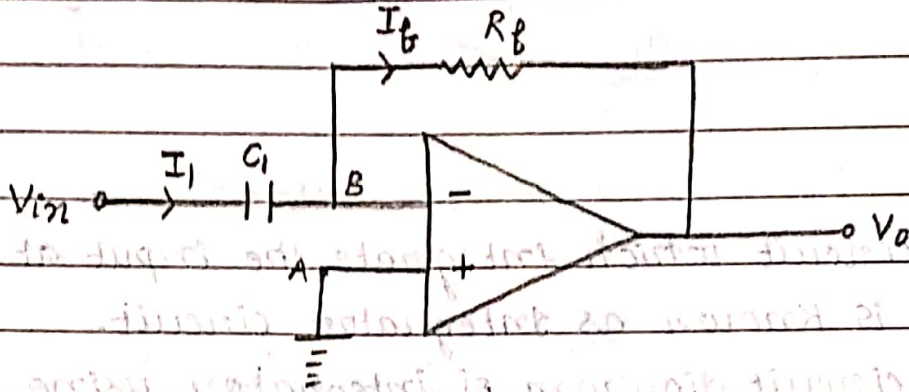 If Rf
I1 C1
Vin B −
A +
Vo